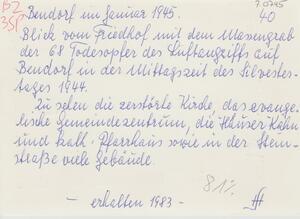 BZ
35P
7.0745
40
Bendorf im Januar 1945.
Blick vom Friedhof mit dem Massengrab
der 68 Todesopfer des Luftangriffs auf
Bendorf in der Mittagszeit des Silvester-
tages 1944.
Zu sehen die zerstörte Kirche, das evange-
lische Gemeindezentrum, die Häuser Kahn
und kath. Pfarrhaus sowie in der Stein-
straße viele Gebäude.
81%
- erhalten 1983 -